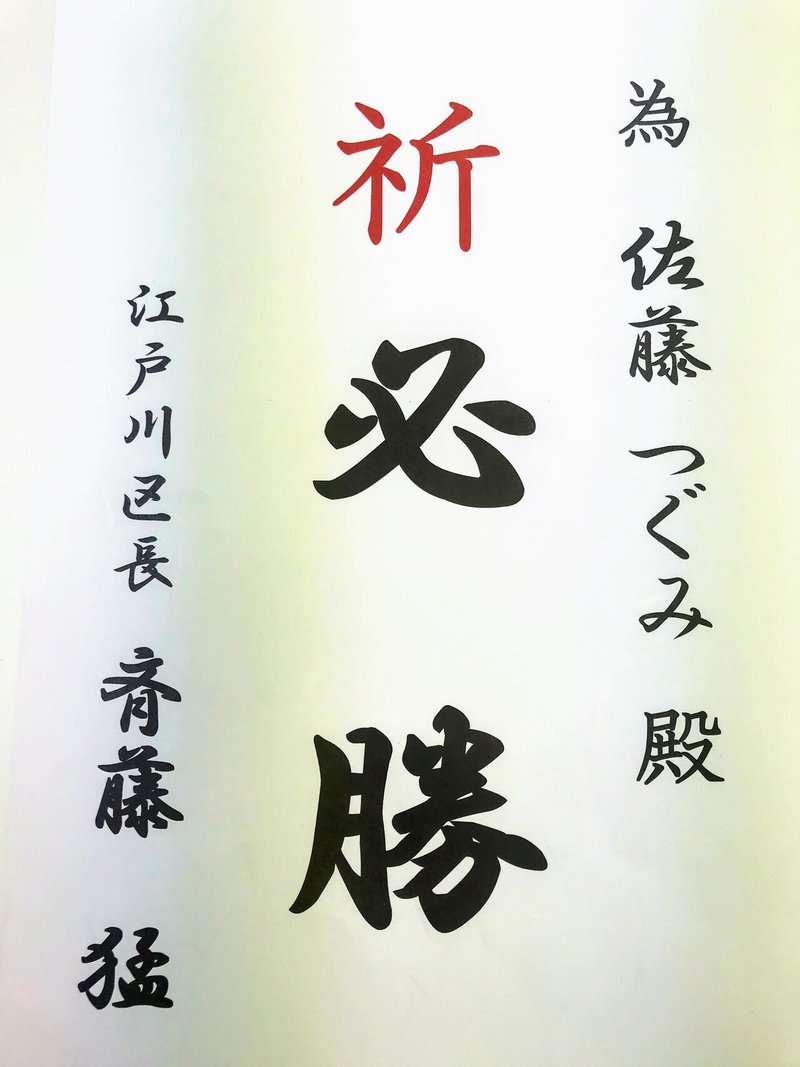 為 佐藤 つぐみ 殿
祈 必勝
江戸川区長 斉藤 猛